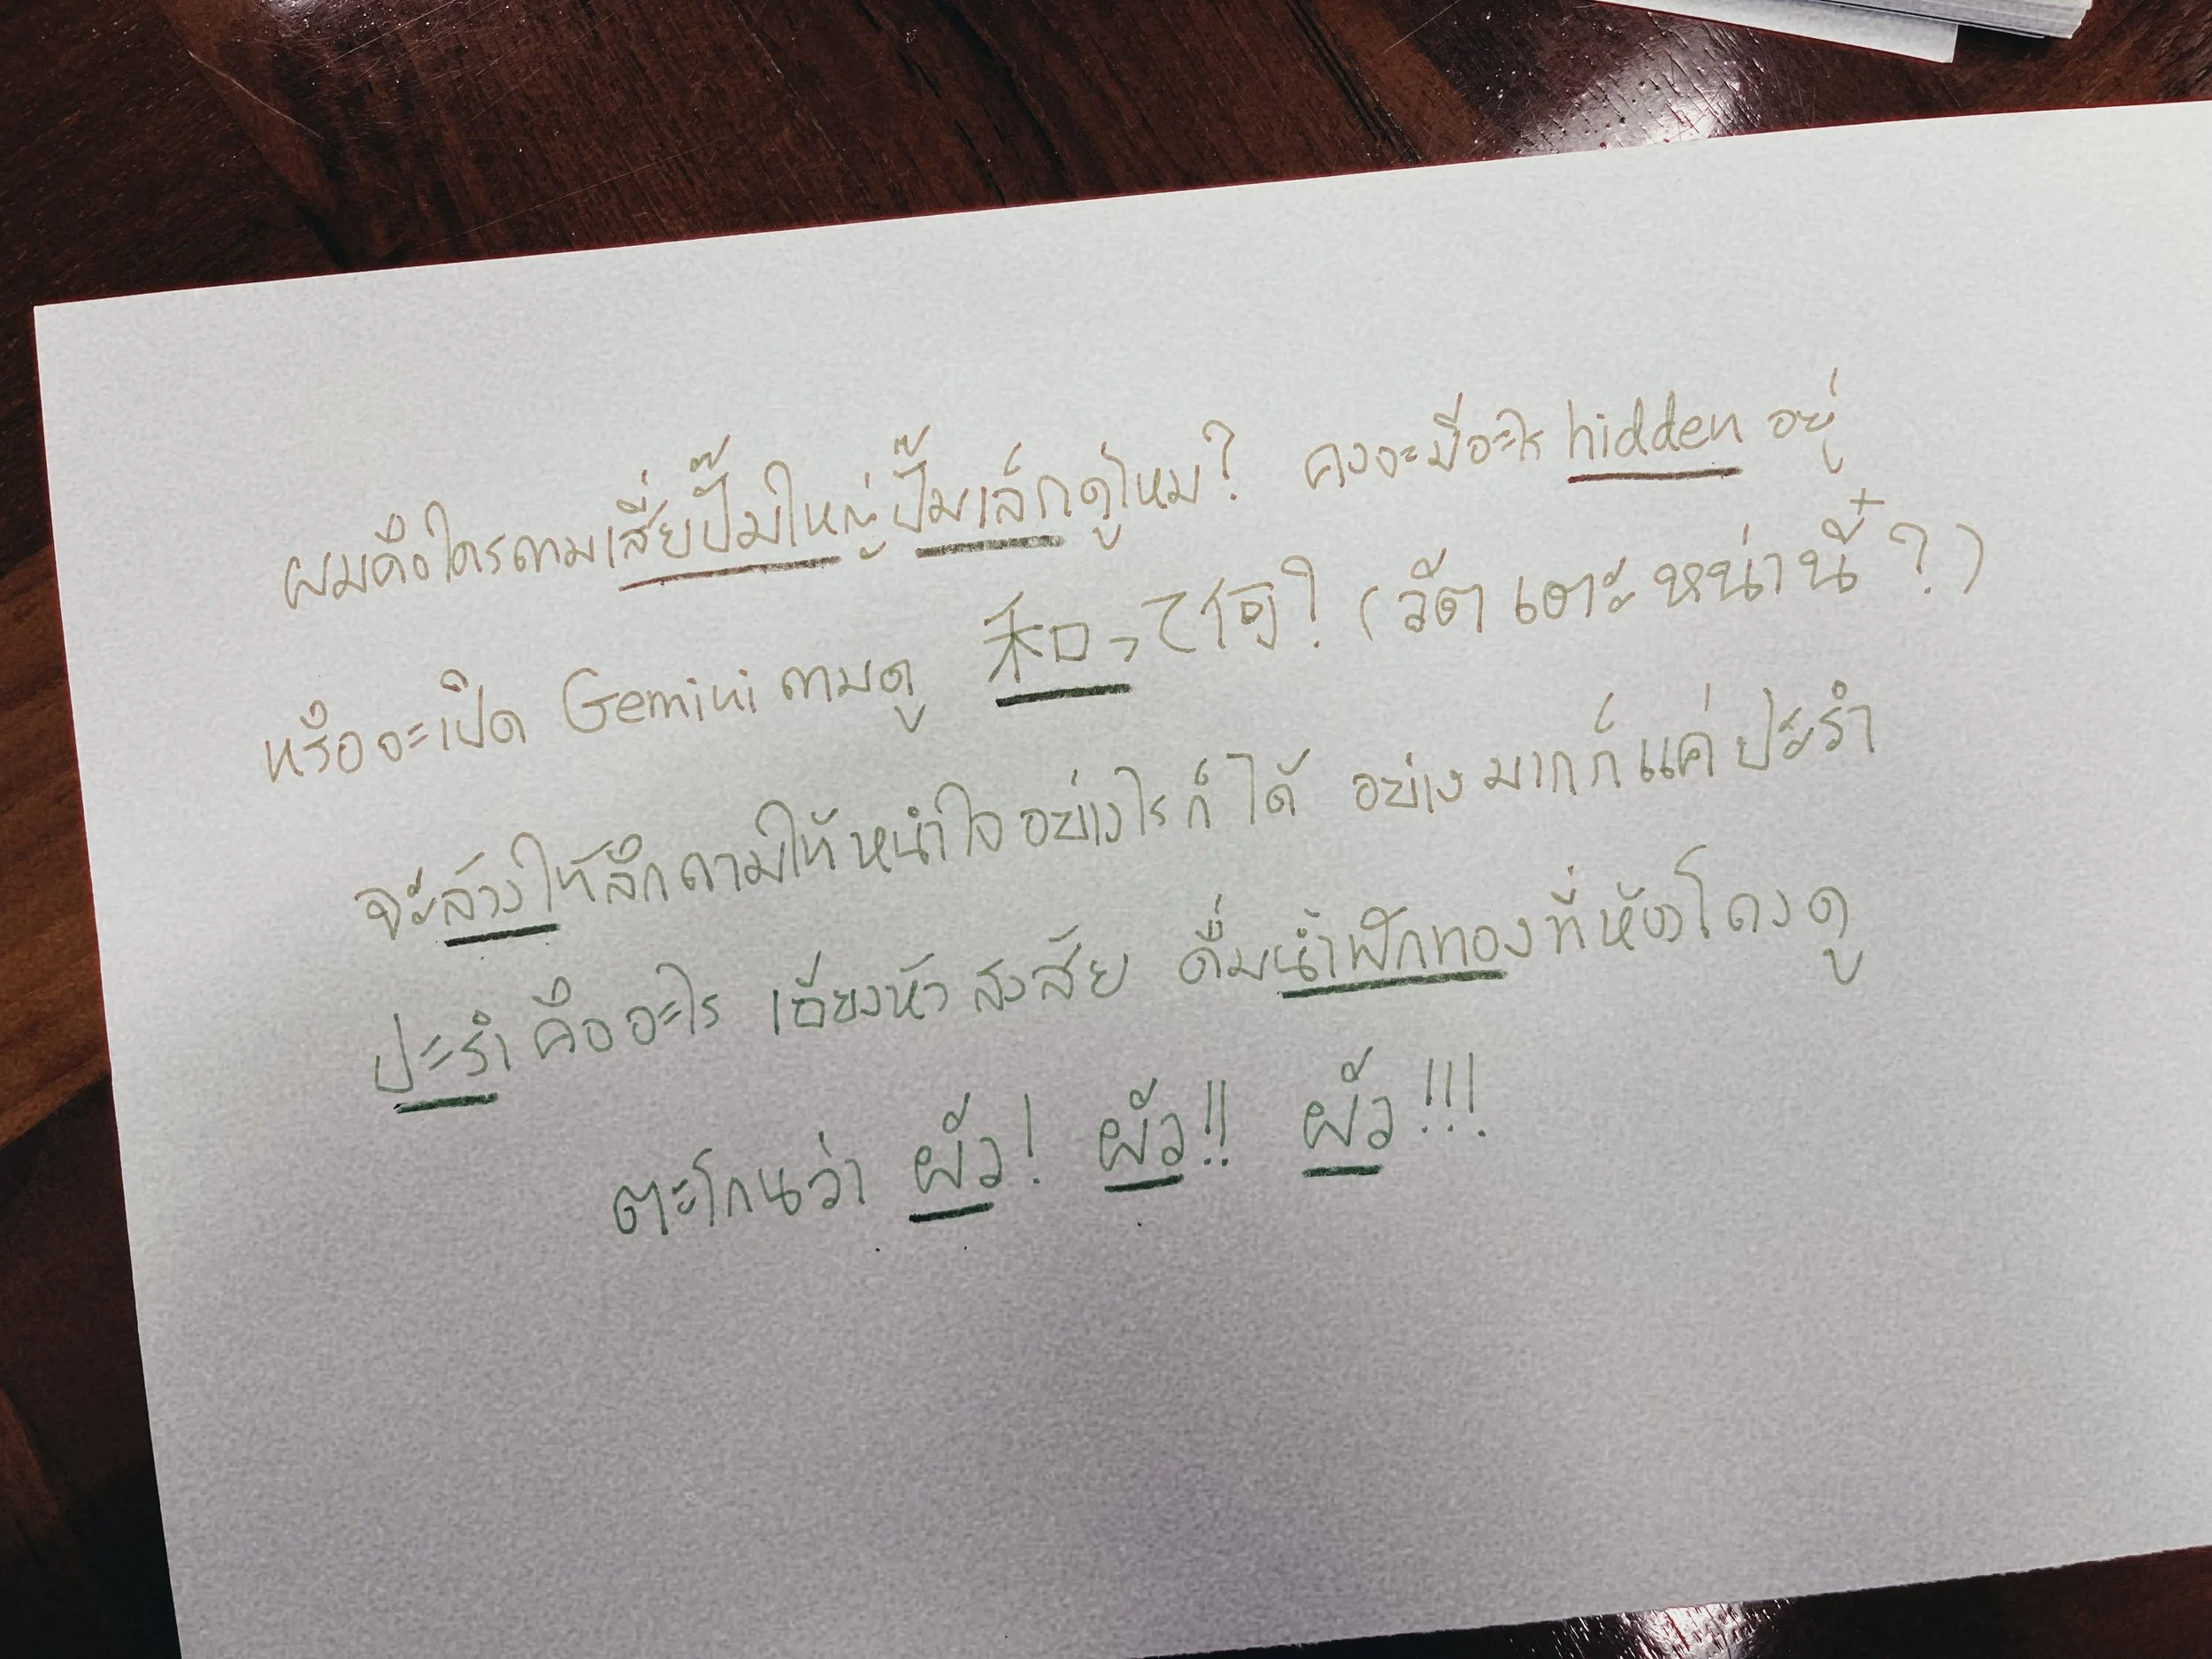 ผมคือใครถามเสี่ยปั๊มใหญ่ปั๊มเล็กดูไหม? คงจะมีอะไร hidden อยู่
หรือจะเปิด Gemini ถามดู (วัต เตาะ หน่า นี้+?)
จะล้วงให้ลึกถามให้หนำใจอย่างไรก็ได้ อย่างมากก็แค่ปะรำ
ปะรำคืออะไร เอียงหัวสงสัย ดื่มน้ำฟักทองที่ห้องโถงดู
ตะโกนว่า ผัว! ผัว!! ผัว!!!